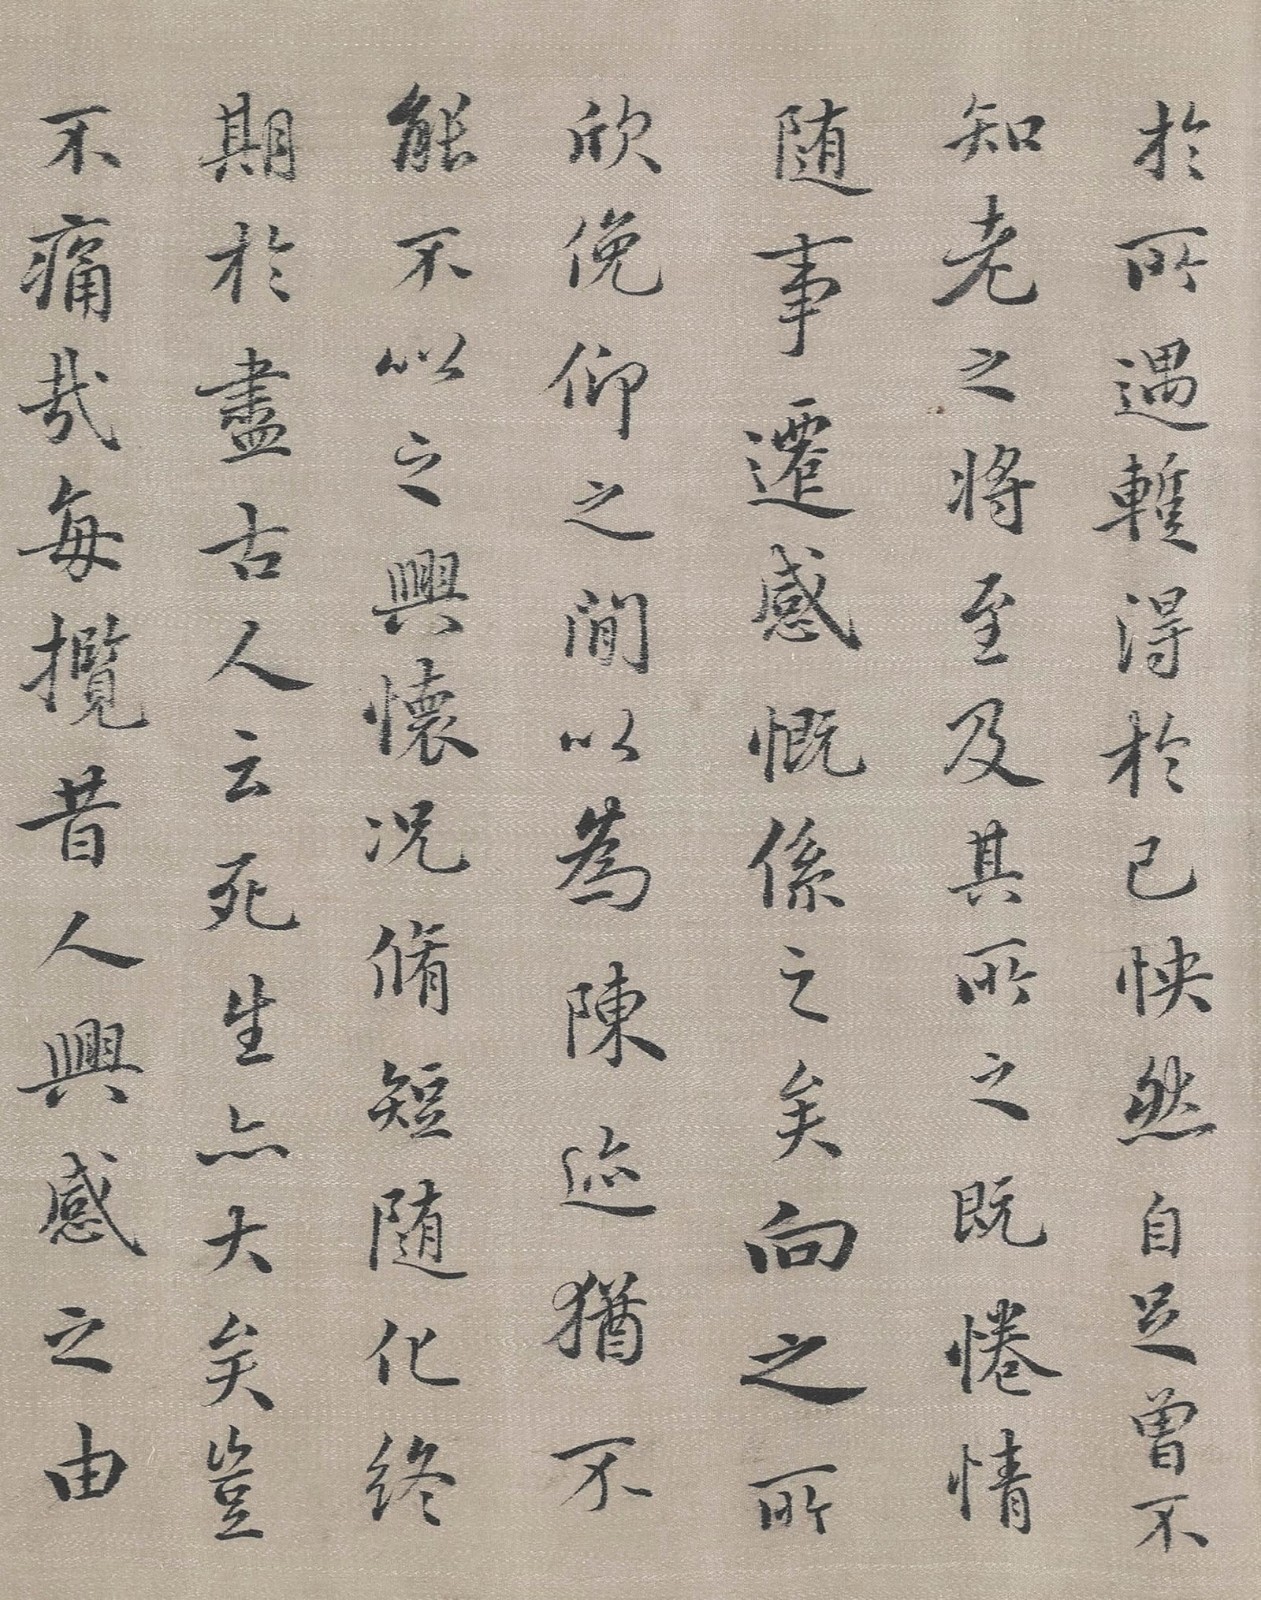 於所遇暫得於己怏然自足曾不
知老之將至及其所之既惓情
随事遷感慨係之矣向之所
欣俛仰之間以為陳迹猶不
能不以之興懷况脩短随化終
期於盡古人云死生亦大矣豈
不痛哉每攬昔人興感之由